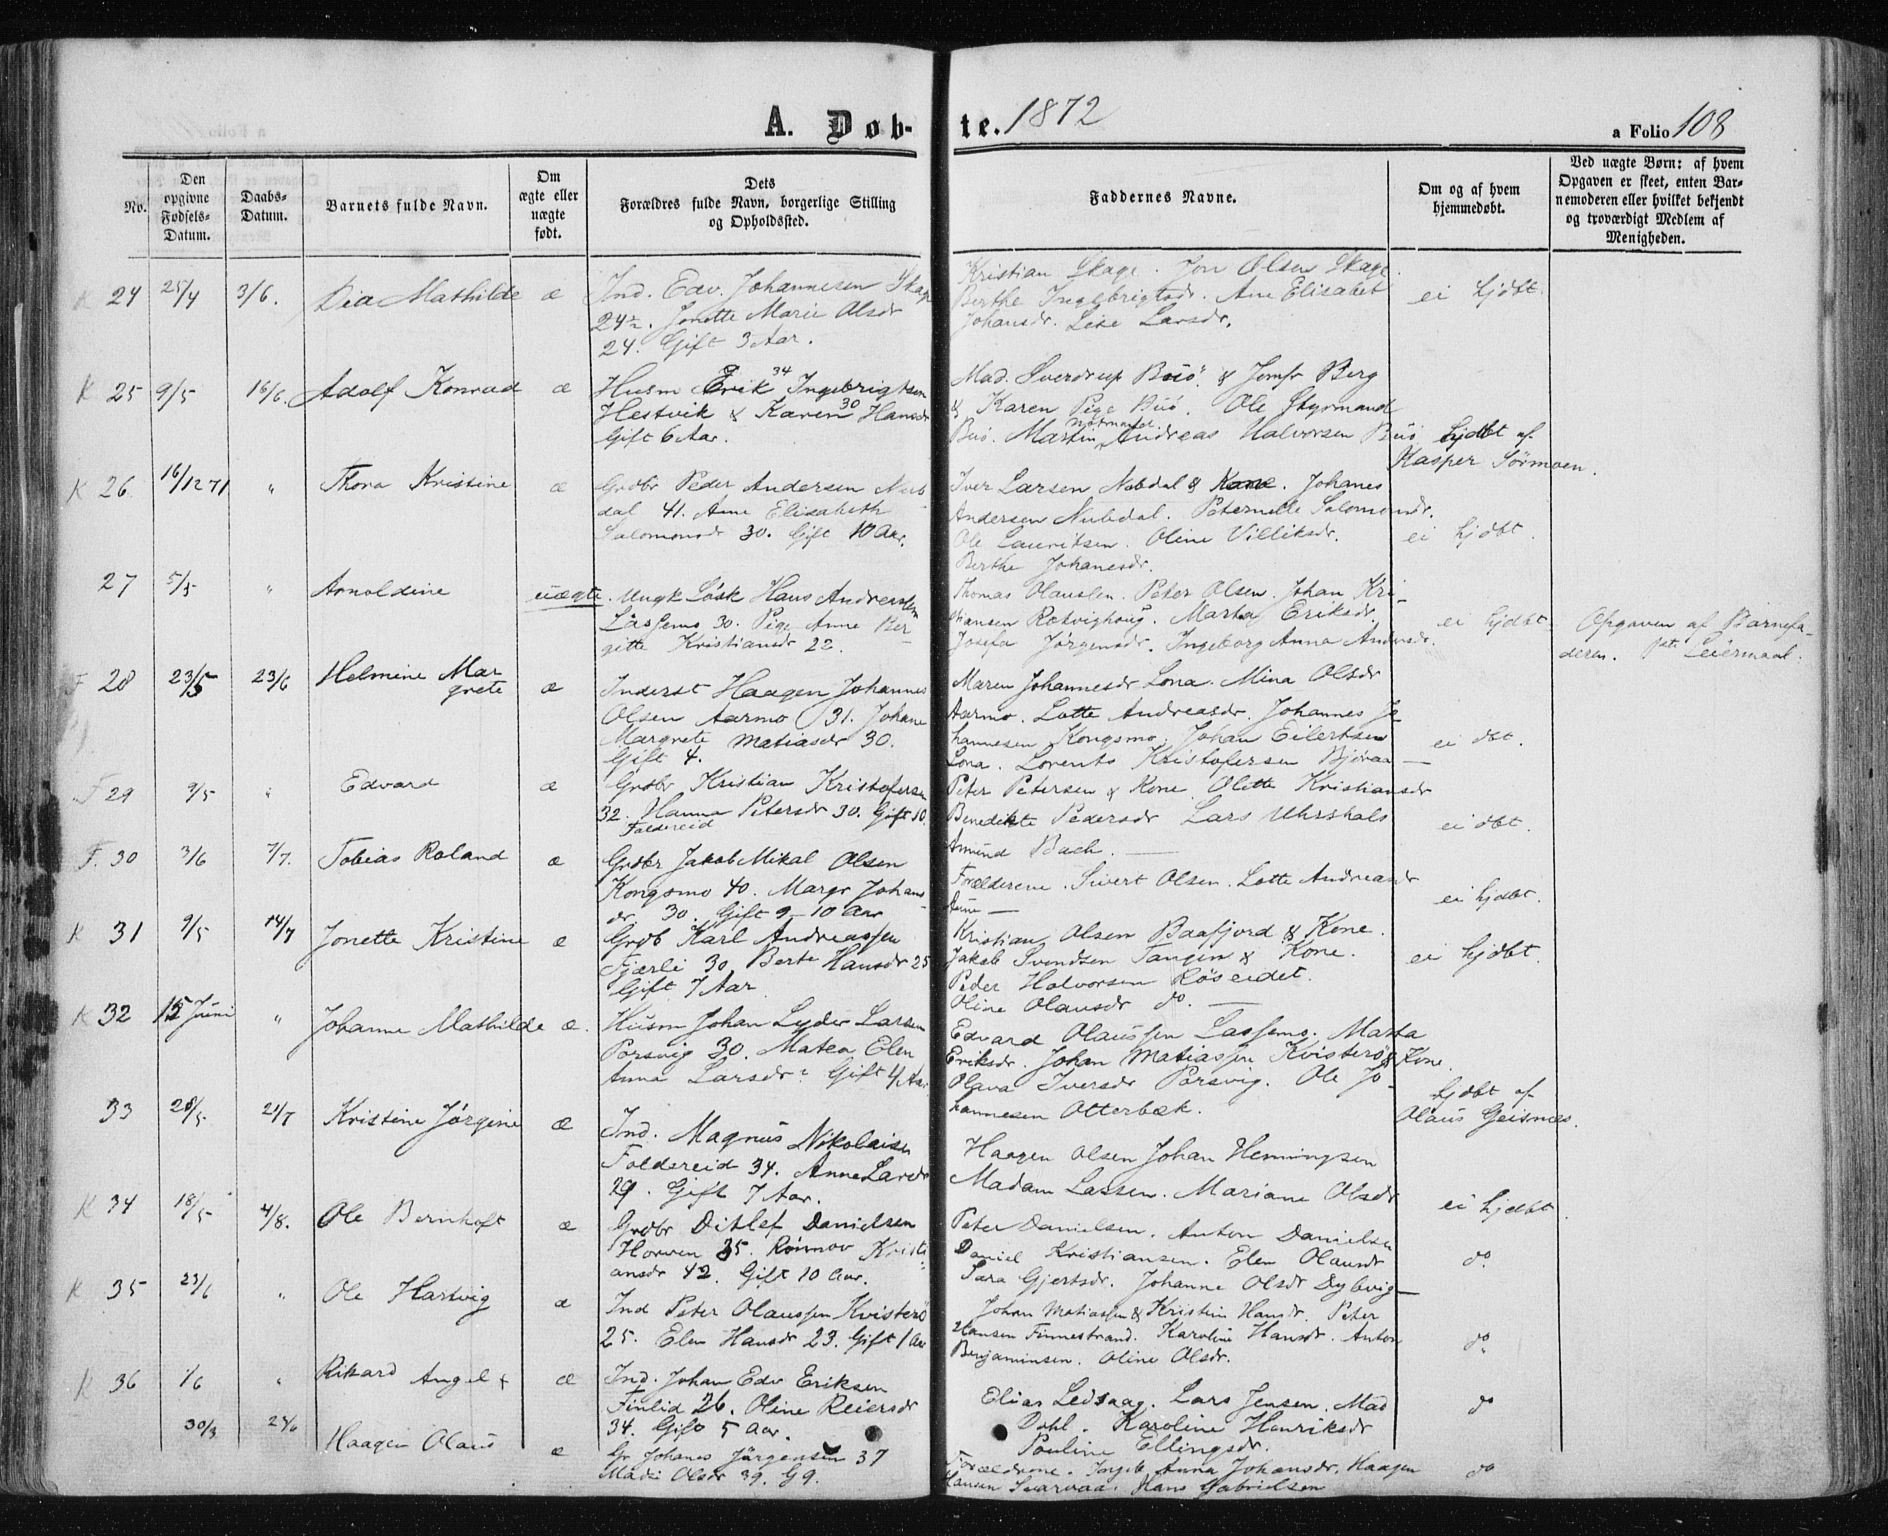 A. Døb-te. 1872
a Folio 108
No.
Den opgivne Fødsels-Datum.
Daabs-Datum.
Barnets fulde Navn.
Om ægte eller uægte født.
Dets Forældres fulde Navn, borgerlige Stilling og Opholdssted.
Faddernes Navne.
Om og af hvem hjemmedøbt.
Ved uægte Børn: af hvem Opgaven er skeet, enten Bar-nemoderen eller hvilket bekjendt og troværdigt Medlem af Menigheden.
24 25/4 3/6. Mathilde æ
Ind. Edv. Johannesen Skage
24½. Jonette Marie Olsdr
24. Gift 3 Aar.
Kristian Skage. Jon Olsen Skage.
Berthe Ingebrigtsdr. Ane Elisabet
Johansdr. Lise Larsdr.
ei hjdbt.
K 25 9/5 16/6. Adolf Konrad æ
Husm Erik 34 Ingebrigtsen
Hestvik & Karen 30 Hansdr
Gift 6 Aar.
Mad. Sverdrup Buö. & Jomfr Berg
& Karen Pige Buö. Ole Styrmand
Buö. Martin Andreas Halvorsen Buö
hjdbt af
Kasper Sörmoen.
K 26 16/12 71 " Thora Kristine æ
Grdbr Peder Andersen Nub-
dal 41. Ane Elisabeth
Salomonsdr 30. Gift 10 Aar.
Iver Larsen Nubdal & Kone. Johanes
Andersen Nubdal. Peternelle Salomonsdr.
Ole Lauritsen. Oline Villiksdr.
Berthe Johanesdr.
ei hjdbt.
27 5/5 " Arnoldine uægte.
Ungk Lösk Hans Andreassen
Lassemo 30. Pige Anne Ber-
gitte Kristiansdr 22.
Thomas Olaussen. Peter Olsen. Johan Kri-
stiansen Rodvighoug. Marta Eriksdr.
Josefa Jørgensdr. Ingeborg Anna Andersdr.
ei hjdbt.
Opgaven af Barnefa-
deren. Leiermaal.
F 28 23/5 23/6 Helmine Mar
grete æ
Inderst Haagen Johannes
Olsen Aarmo 31. Johane
Margrete Matiasdr 30.
Gift 4.
Maren Johannesdr Lona. Mina Olsdr
Aarmo. Lotte Andreasdr. Johannes Jo-
hannesen Kongsmo. Johan Eilertsen
Lona. Lorents Kristofersen Björaa —
ei dbt.
F 29 9/5 " Edvard æ
Grdbr Kristian Kristofersen
32. Hanna Petersdr 30. Gift 10.
Foldereid
Peter Petersen & Kone. Olette Kristiansdr
Benedikte Pedersdr Lars Uhrshals
Amund Bach. —
ei dbt.
F. 30 3/6 7/7. Tobias Roland æ
Grdbr Jakob Mikal Olsen
Kongsmo 40. Margr Johans-
dr 30. Gift 9-10 Aar
Forælderene. Sivert Olsen. Lotte Andreasdr
Aune —
ei hjdbt.
K 31 9/5 14/7 Jonette Kristine æ
Grdb Karl Andreassen
Fjærli 30 Berte Hansdr 25
Gift 7 Aar
Kristian Olsen Baafjord & Kone.
Jakob Svendsen Tangen & Kone.
Peder Halvorsen Röseidet.
Oline Olausdr do. —
ei hjdbt.
K 32 15 Juni " Johanne Mathilde æ.
Husm Johan Lyder Larsen
Porsvig 30. Matea Elen
Anna Larsdr? Gift 4 Aar
Edvard Olaussen Lassemo. Marta
Eriksdr. Johan Matiassen Kvisterö & Kone.
Olava Iversdr Porsvig. Ole Jo-
hannesen Otterbæk.
hjdbt af
Olaus Geisnæs.
33 28/5 21/7 Kristine Jørgine æ
Ind. Magnus Nikolaisen
Foldereid 34. Anne Larsdr
29. Gift 7 Aar.
Haagen Olsen Johan Henningsen
Madam Lassen. Mariane Olsdr
ei hjdbt.
K 34 18/5 4/8. Ole Bernhoft æ
Grdbr Ditlef Danielsen
Horven 35. Rönnov Kristi-
ansdr 42. Gift 10 Aar.
Peter Danielsen. Anton Danielsen
Daniel Kristiansen. Elen Olausdr
Sara Gjertsdr. Johanne Olsdr Dybvig —
do
K 35 23/6 " Ole Hartvig æ
Ind Peter Olaussen Kvisterö
25. Elen Hansdr 23. Gift 1 Aar
Johan Matiassen & Kristin Hansdr. Peter
Hansen Finnestrand. Karoline Hansdr. Anton
Benjaminsen. Oline Olsdr.
do
K 36 1/6 " Rikard Angel æ
Ind. Johan Edv Eriksen
Finlid 26. Oline Reiersdr
34. Gift 5 Aar.
Elias Ledsaag. Lars Jensen. Mad
Dahl. Karoline Henriksdr
Pauline Ellingsdr.
do
30/3 Haagen Olaus æ
Gr Johanes Jörgensen 37
Olsdr 39. G 9.
Forældrene. Ingeb. Anna Johansdr. Haagen
Hansen. Hans Gabrielsen
do